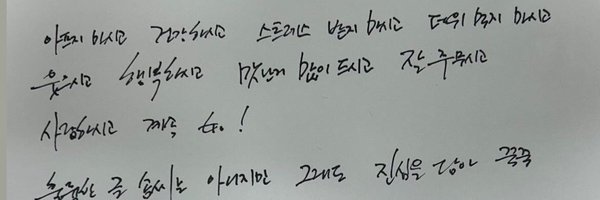 아프지 마시고 건강하시고 스트레스 받지 마시고 더위 먹지 마시고
웃으시고 행복하시고 맛난거 많이 드시고 잘 주무시고
사랑하시고 계속 so!
훌륭한 글 솜씨는 아니지만 그래도 진심을 담아 꾹꾹